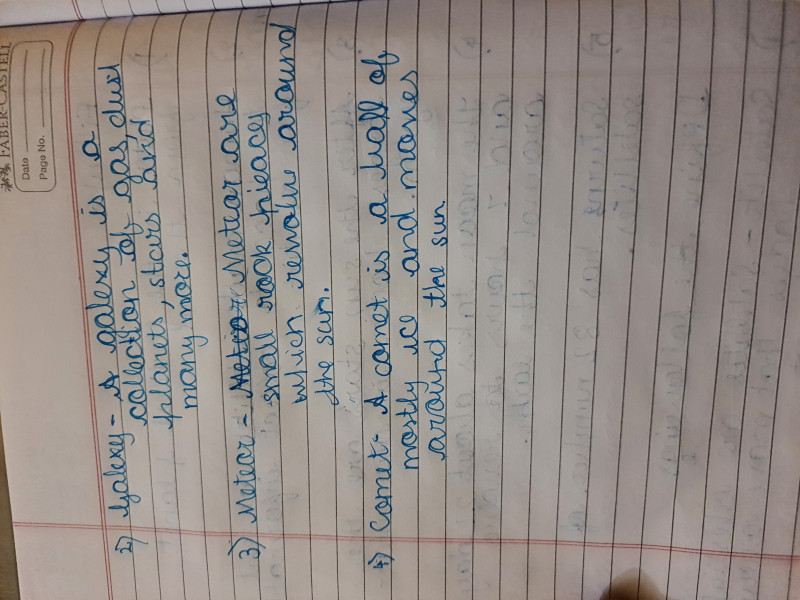 FABER-CASTELL
Date
Page No.
2) Galexy - A galexy is a
collection of gas dust
planets, stars and
many more.
3) Meteor - Meteor Meteor are
small rock pieacy
which revolve around
the sun.
4) Comet - A comet is a ball of
mostly ice and moves
around the sun